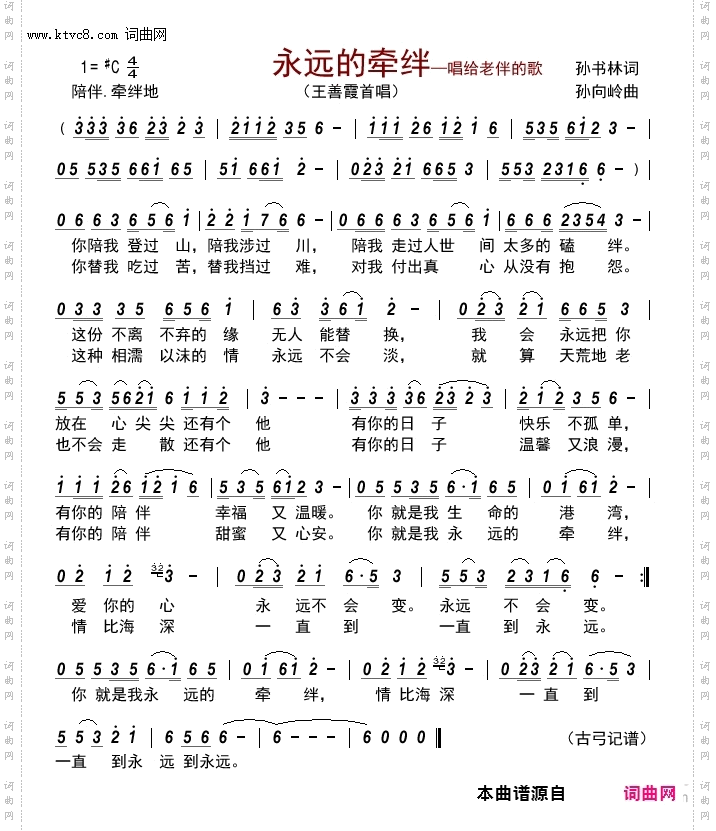 www.ktvc8.com 词曲网
1=#C 4/4
永远的牵绊—唱给老伴的歌
孙书林词
陪伴.牵绊地
（王善霞首唱）
孙向岭曲
( 333 36 23 2 3 | 2112 356 - | 111 26 12 1 6 | 535 612 3 - |
05 535 661 65 | 51 661 2 - | 023 21 665 3 | 553 2316 6 - )
06 63 656 1 | 22 176 6 - | 066 63 656 1 | 666 2354 3 - |
你陪我 登过 山，陪我涉过 川， 陪我 走过人世 间 太多的 磕 绊。
你替我 吃过 苦，替我挡过 难， 对我 付出真 心 从没有 抱 怨。
033 35 656 1 | 63 361 2 - | 023 21 665 3 |
这份 不离 不弃的 缘 无人 能替 换， 我 会 永远把 你
这种 相濡 以沫的 情 永远 不会 淡， 就 算 天荒地 老
553 5621 6 112 | 3 - - - | 333 36 23 2 3 | 212 356 - |
放在 心 尖尖 还有个 他 有你的日 子 快乐 不孤 单，
也不会 走 散还有个 他 有你的日 子 温馨 又浪 漫，
111 26 12 1 6 | 535 612 3 - | 05 535 6·1 65 | 01 61 2 - |
有你的 陪 伴 幸福 又 温暖。 你 就是我 生 命的 港 湾，
有你的 陪 伴 甜蜜 又 心安。 你 就是我 永 远的 牵 绊，
02 12 323 - | 023 21 6·5 3 | 553 2316 6 - :||
爱 你的 心 永 远不 会 变。 永远 不 会 变。
情 比海 深 一 直 到 一直 到 永 远。
05 535 6·1 65 | 01 61 2 - | 02 12 323 - | 023 21 6·5 3 |
你 就是我永 远的 牵 绊， 情 比海 深 一 直 到
553 21 | 656 6 - | 6 - - - | 6 0 0 0 ||
（古弓记谱）
一直 到永 远 到永远。
本曲谱源自 词曲网
词曲网
词曲网
词曲网
词曲网
词曲网
词曲网
词曲网
词曲网
词曲网
词曲网